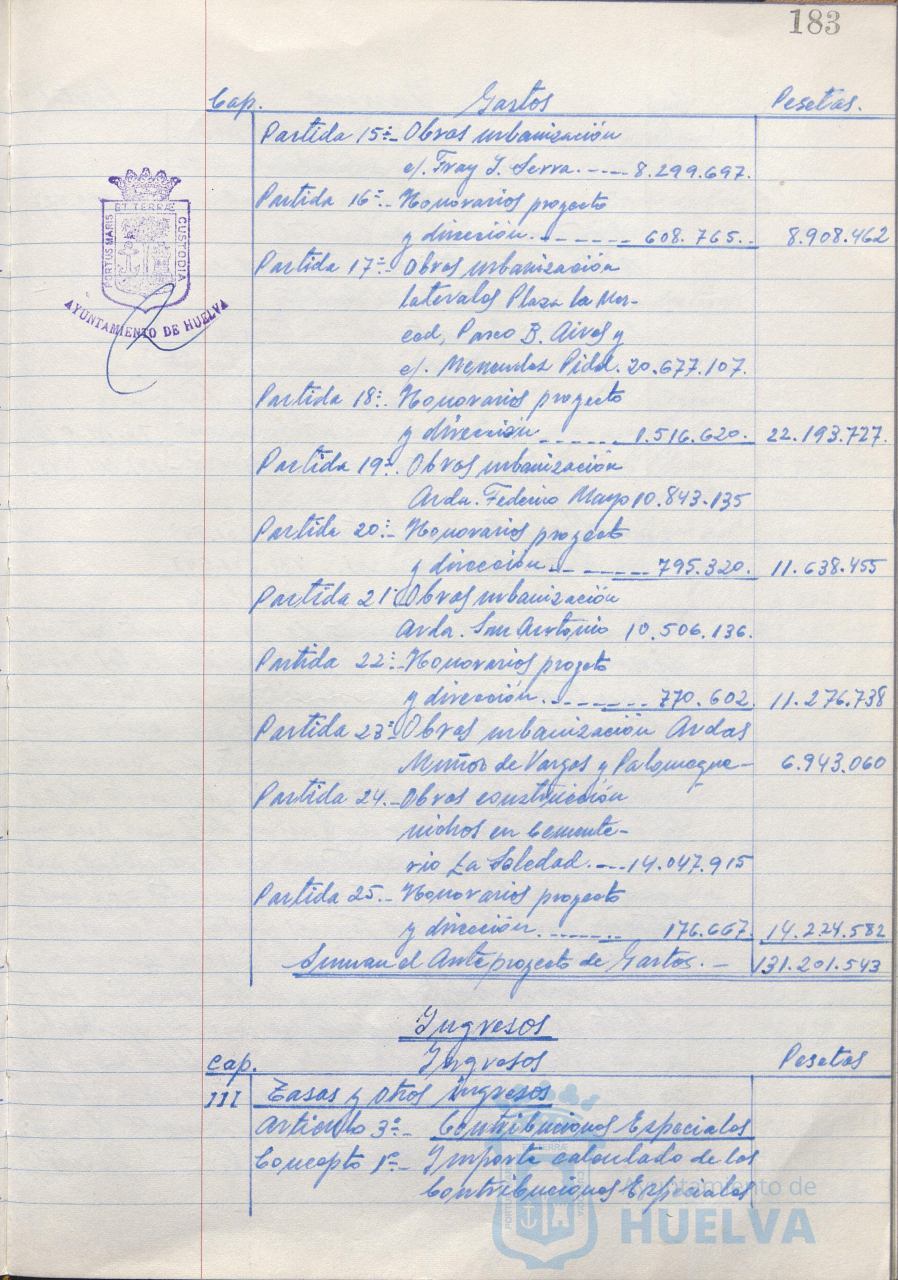 183
Cap. Gastos Pesetas.
Partida 15ª.- Obras urbanización
c/. Fray J. Serra. ---- 8.299.697.
Partida 16ª.- Honorarios proyecto
y dirección. ------ 608.765.- 8.908.462
Partida 17ª.- Obras urbanización
laterales Plaza la Mer-
ced, Paseo B. Aires y
c/. Menendez Pidal. 20.677.107.
Partida 18ª. Honorarios proyecto
y dirección ------ 1.516.620. 22.193.727.
Partida 19ª. Obras urbanización
Avda. Federico Mayo 10.843.135
Partida 20ª.- Honorarios proyecto
y dirección.------ 795.320. 11.638.455
Partida 21ª Obras urbanización
Avda. San Antonio 10.506.136.
Partida 22ª.- Honorarios proyeto
y dirección.------- 770.602. 11.276.738
Partida 23ª Obras urbanización Avdas
Muñoz de Vargas y Palomeque- 6.943.060
Partida 24.- Obras construcción
nichos en Cemente-
rio La Soledad.---14.047.915
Partida 25.- Honorarios proyecto
y dirección.------- 176.667. 14.224.582
Suman el Anteproyecto de Gastos.- 131.201.543
Ingresos
Cap. Ingresos Pesetas
III Tasas y otros ingresos
Articulo 3º.- Contribuciones Especiales
Concepto 1º.- Importe calculado de las
Contribuciones Especiales
PORTUS MARIS ET TERRÆ CUSTODIA
AYUNTAMIENTO DE HUELVA
Ayuntamiento de
HUELVA